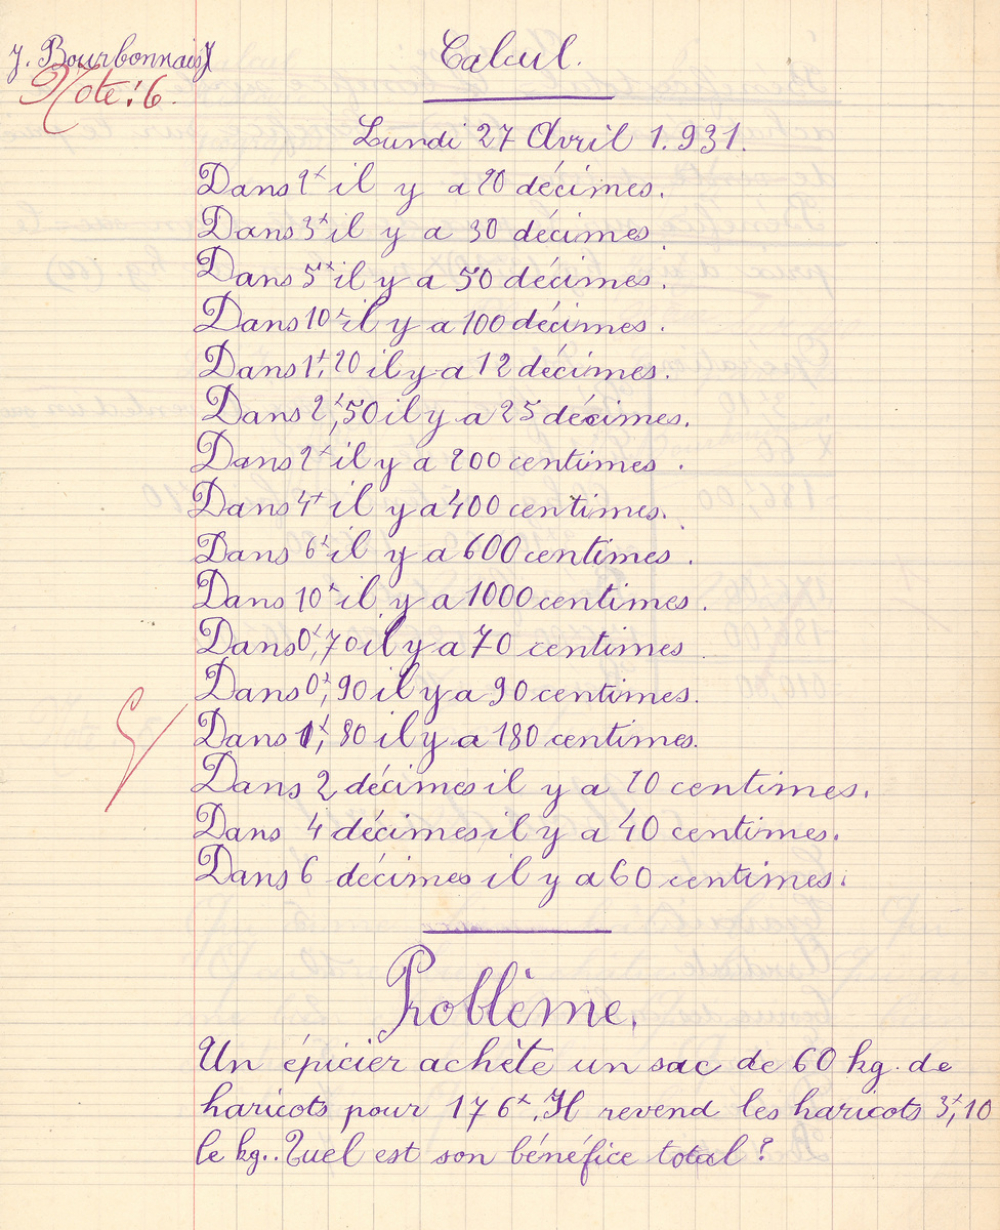 J. Bourbonnais
Calcul.
Note: 6.
Lundi 27 Avril 1.931.
Dans 2ᶠ il y a 20 décimes.
Dans 3ᶠ il y a 30 décimes.
Dans 5ᶠ il y a 50 décimes.
Dans 10ᶠ il y a 100 décimes.
Dans 1ᶠ,20 il y a 12 décimes.
Dans 2ᶠ,50 il y a 25 décimes.
Dans 2ᶠ il y a 200 centimes.
Dans 4ᶠ il y a 400 centimes.
Dans 6ᶠ il y a 600 centimes.
Dans 10ᶠ il y a 1000 centimes.
Dans 0ᶠ,70 il y a 70 centimes.
Dans 0ᶠ,90 il y a 90 centimes.
Dans 1ᶠ,80 il y a 180 centimes.
Dans 2 décimes il y a 20 centimes.
Dans 4 décimes il y a 40 centimes.
Dans 6 décimes il y a 60 centimes.
Problème.
Un épicier achète un sac de 60 kg. de
haricots pour 176ᶠ. Il revend les haricots 3ᶠ,10
le kg.. Quel est son bénéfice total ?